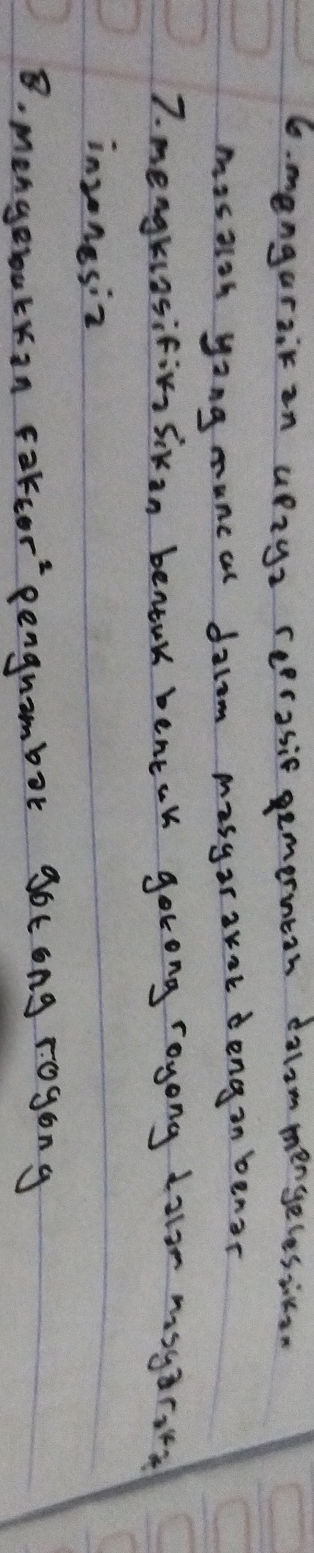 6. menguraikan upaya reprasif pemerintah dalam mengelesaikan
masalah yang muncul dalam masyarakat dengan benar
7. mengklasifikasikan bentuk bentuk gotong royong dalam masyaraka
indonesia
8. Mengebutkan faktor² penghambat gotong royong